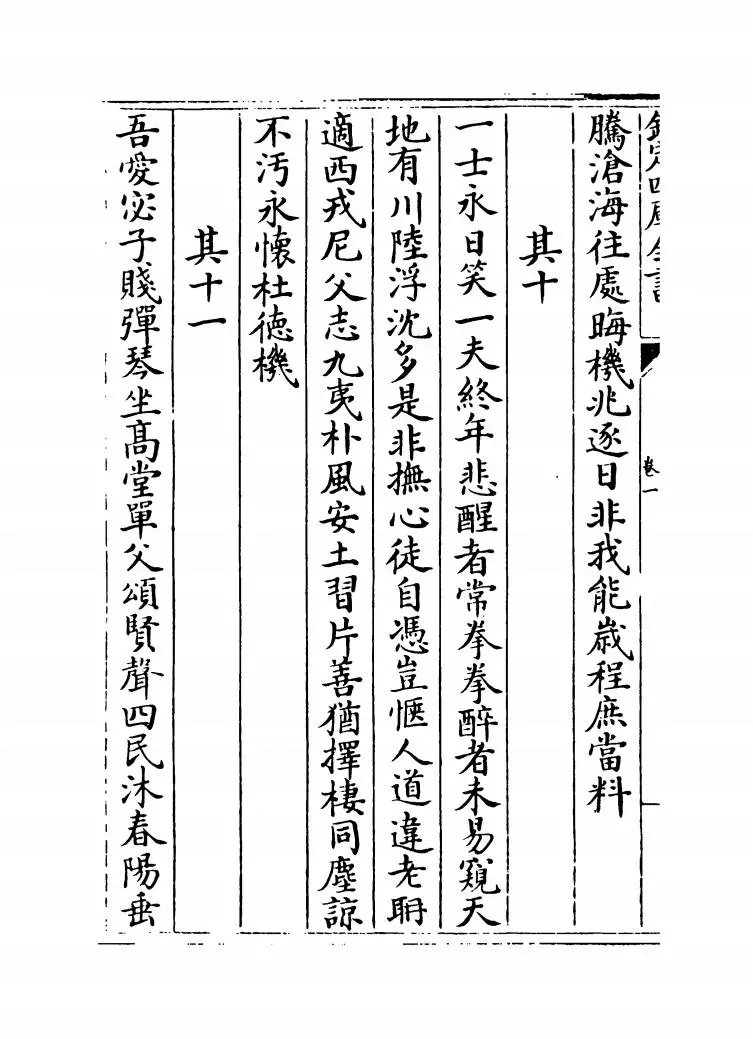 欽定四庫全書
卷一
騰滄海往處晦機兆逐日非我能歳程庶當料
其十
一士永日笑一夫終年悲醒者常拳拳醉者未易窺天
地有川陸浮沈多是非撫心徒自憑豈愜人道違老聃
適西戎尼父志九夷朴風安土習片善猶擇棲同塵諒
不汚永懷杜徳機
其十一
吾愛宓子賤彈琴坐髙堂單父頌賢聲四民沐春陽垂